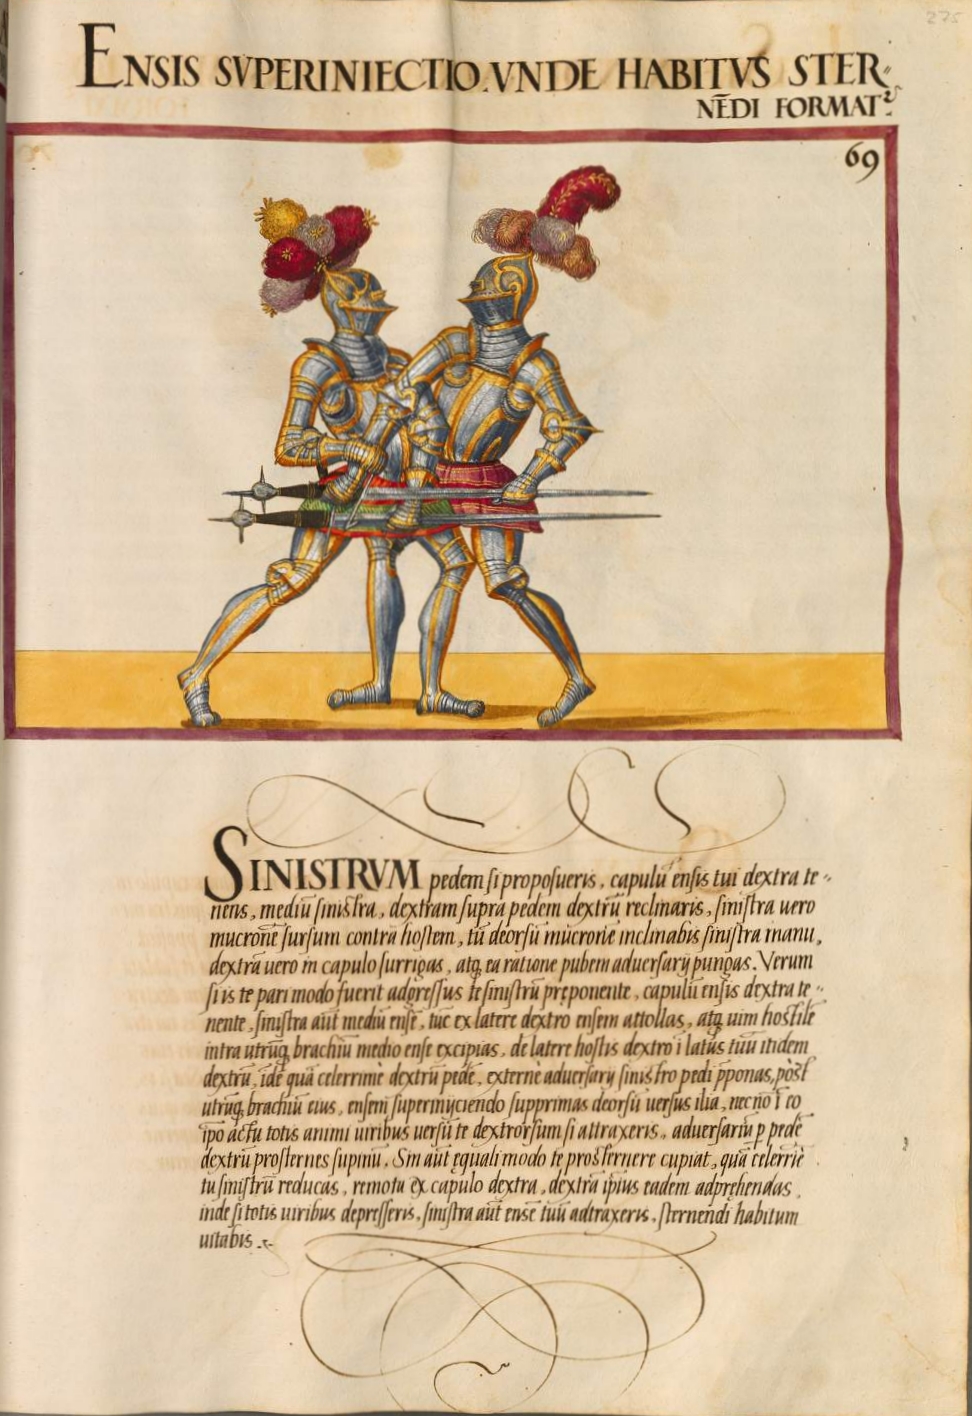 275
ENSIS SVPERINIECTIO. VNDE HABITVS STER-
NĒDI FORMATꝰ.
69
SINISTRVM pedem ſi propoſueris, capulū enſis tui dextra te-
nens, mediū ſiniſtra, dextram ſupra pedem dextrū reclinaris, ſiniſtra uero
mucronē ſurſum contra hoſtem, tū deorſū mucronē inclinabis ſiniſtra manu,
dextra uero in capulo ſurrigas, atq; ea ratione pubem aduerſarij pungas. Verum
ſi is te pari modo fuerit adgreſſus te ſiniſtrū pręponente, capulū enſis dextra te-
nente, ſiniſtra aūt mediū enſē, tūc ex latere dextro enſem attollas, atq; uim hoſtilē
intra utrūq; brachiū medio enſe excipias, de latere hoſtis dextro ī latus tuū itidem
dextrū, idē quā celerrimè dextrū pedē, externè aduerſarij siniſtro pedi p̄ponas, pòſt
utrūq; brachiū eius, enſem ſuperinijciendo ſupprimas deorſū uerſus ilia, necnō ī eo
ipō actu totis animi uiribus uerſū te dextrorſum ſi attraxeris, aduerſariū p pedē
dextrū proſternes ſupinū. Sin aūt ęquali modo te proſternere cupiat, quā celerrīe
tu ſiniſtrū reducas, remota ex capulo dextra, dextrā ipſius eadem adpręhendas,
inde ſi totis uiribus depreſſeris, ſiniſtra aūt enſē tuū adtraxeris, ſternendi habitum
uitabis.